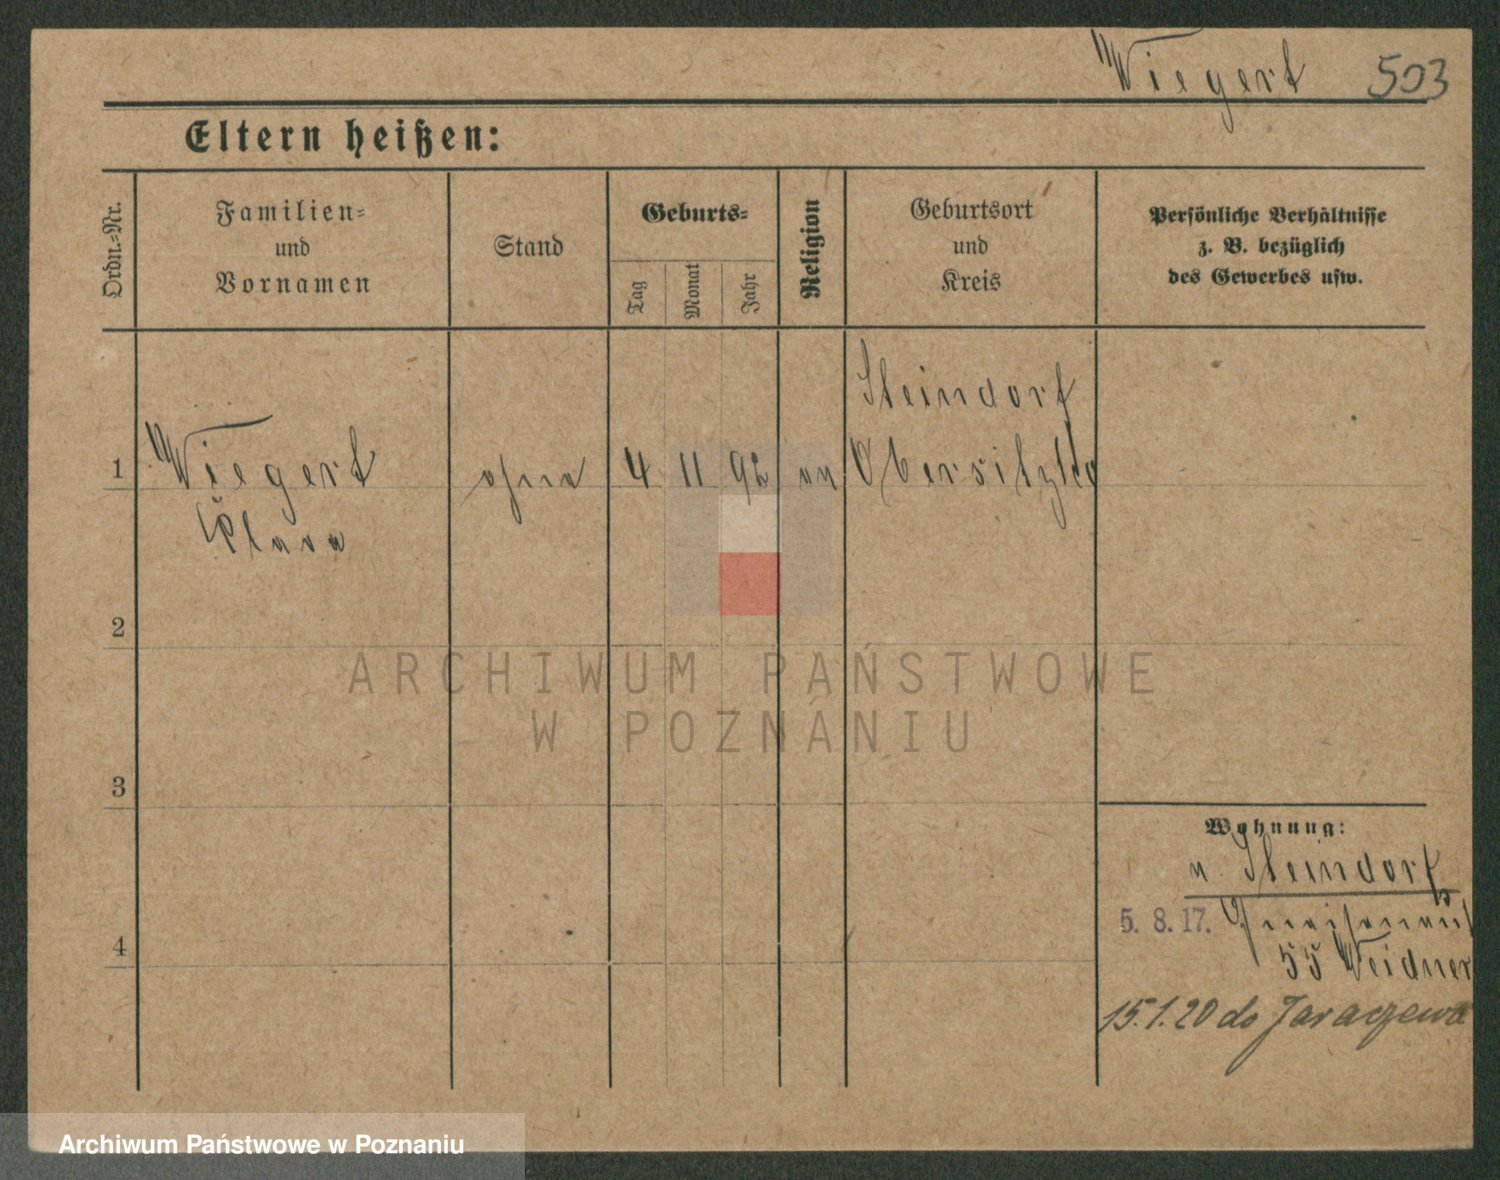 Wiegert 503
Eltern heißen:
Ordn.-Nr.
Familien-
und
Vornamen
Stand
Geburts-
Tag
Monat
Jahr
Religion
Geburtsort
und
Kreis
Persönliche Verhältnisse
z. B. bezüglich
des Gewerbes usw.
Steindorf
1 Wiegert ohne 4 11 92 ev Obersitzko
Klara
2
3
4
Wohnung:
v. Steindorf
5. 8. 17. Gneisenaust
55 Weidner
15.1.20 do Jaraczewa
ARCHIWUM PAŃSTWOWE
W POZNANIU
Archiwum Państwowe w Poznaniu